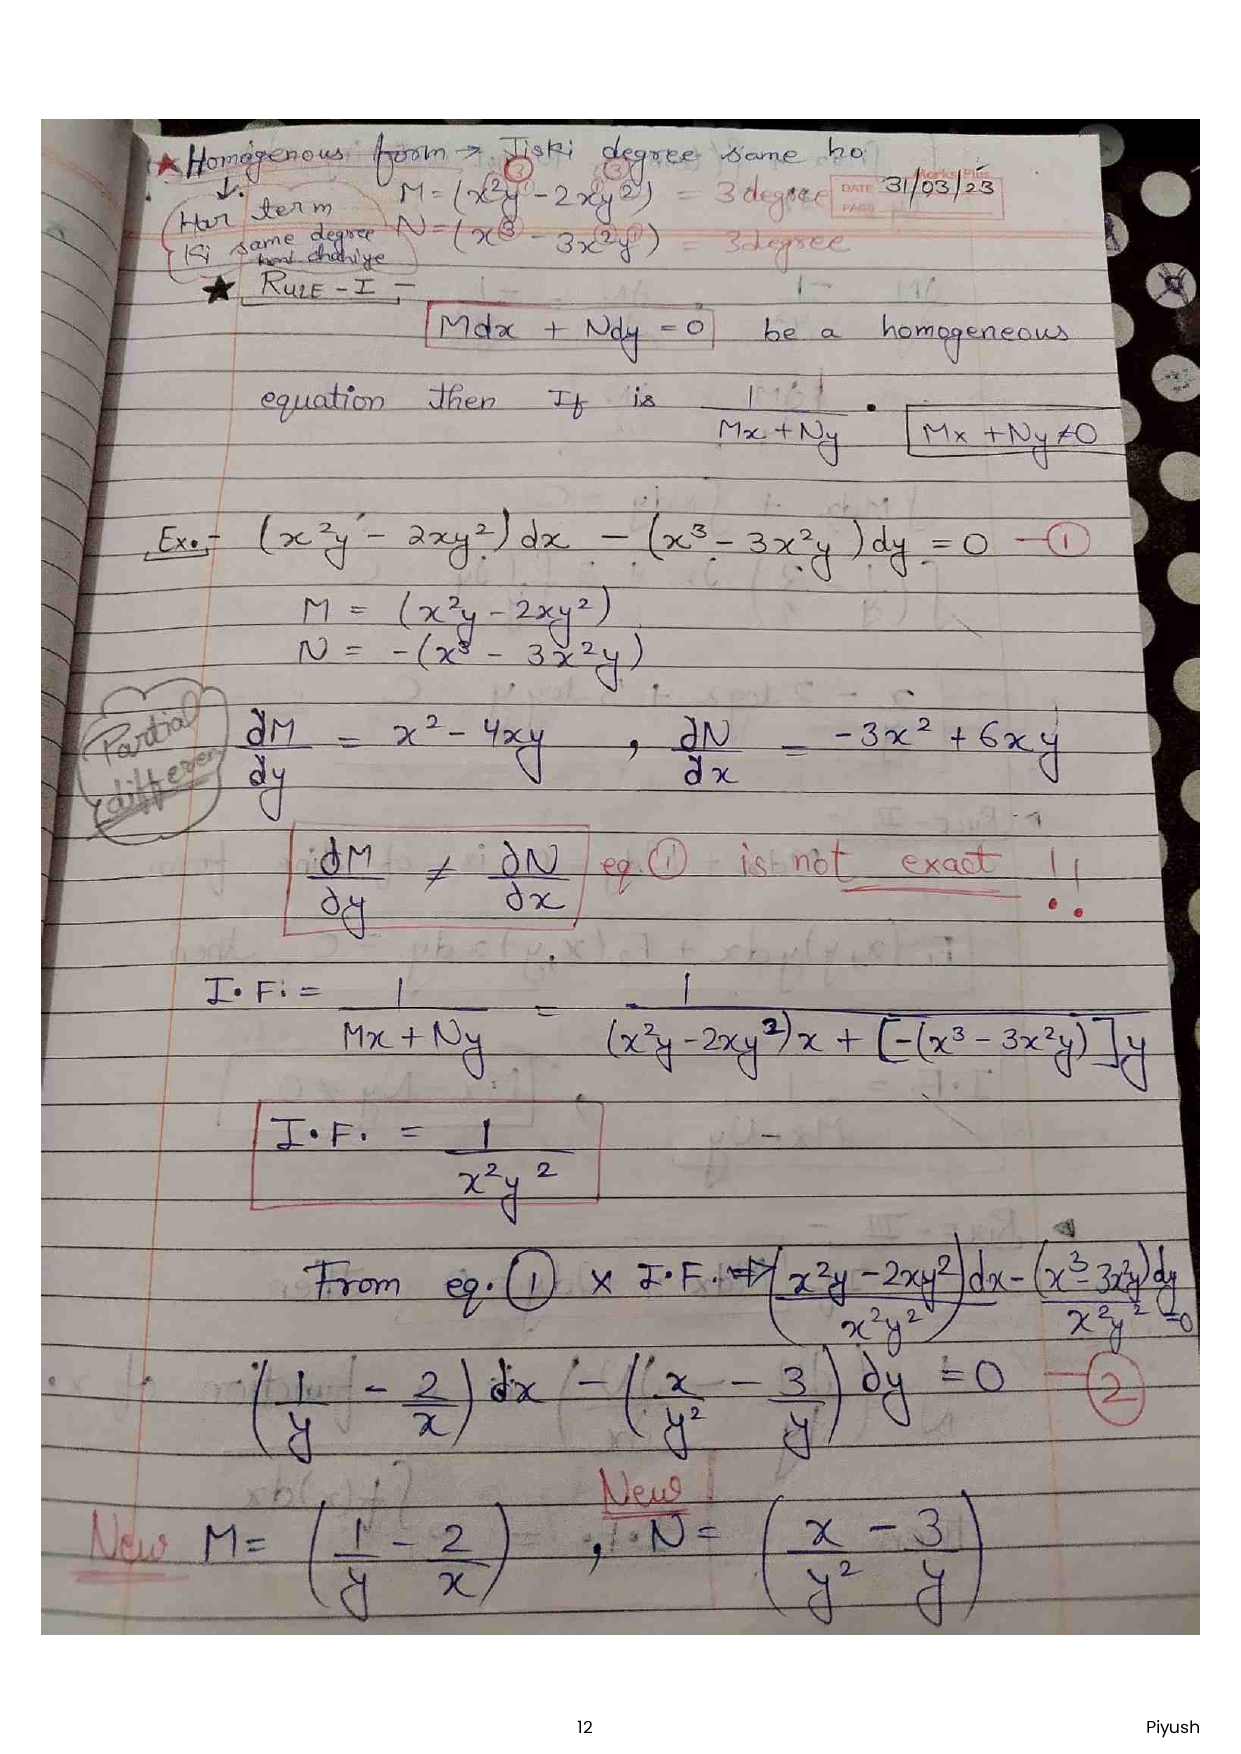 ★ Homogenous form → Jiski degree same ho
Har term
Ki same degree
honi chahiye
M = (x²y - 2xy²) = 3 degree
DATE 31/03/23
PAGE
N = (x³ - 3x²y) = 3 degree
③ ③
★ RULE - I -
Mdx + Ndy = 0 be a homogeneous
equation then If is 1/(Mx + Ny) . Mx + Ny ≠ 0
Ex.- (x²y - 2xy²) dx - (x³ - 3x²y) dy = 0 — ①
M = (x²y - 2xy²)
N = -(x³ - 3x²y)
Partial
differen
∂M/∂y = x² - 4xy , ∂N/∂x = -3x² + 6xy
∂M/∂y ≠ ∂N/∂x eq. ① is not exact !!
I.F. = 1/(Mx + Ny) = 1/((x²y - 2xy²)x + [-(x³ - 3x²y)]y)
I.F. = 1/(x²y²)
From eq. ① × I.F. ⇒ ((x²y - 2xy²)/(x²y²)) dx - (x³ - 3x²y)dy/(x²y²) = 0
(1/y - 2/x) dx - (x/y² - 3/y) dy = 0 — ②
New M = (1/y - 2/x) , New N = (x/y² - 3/y)
12
Piyush